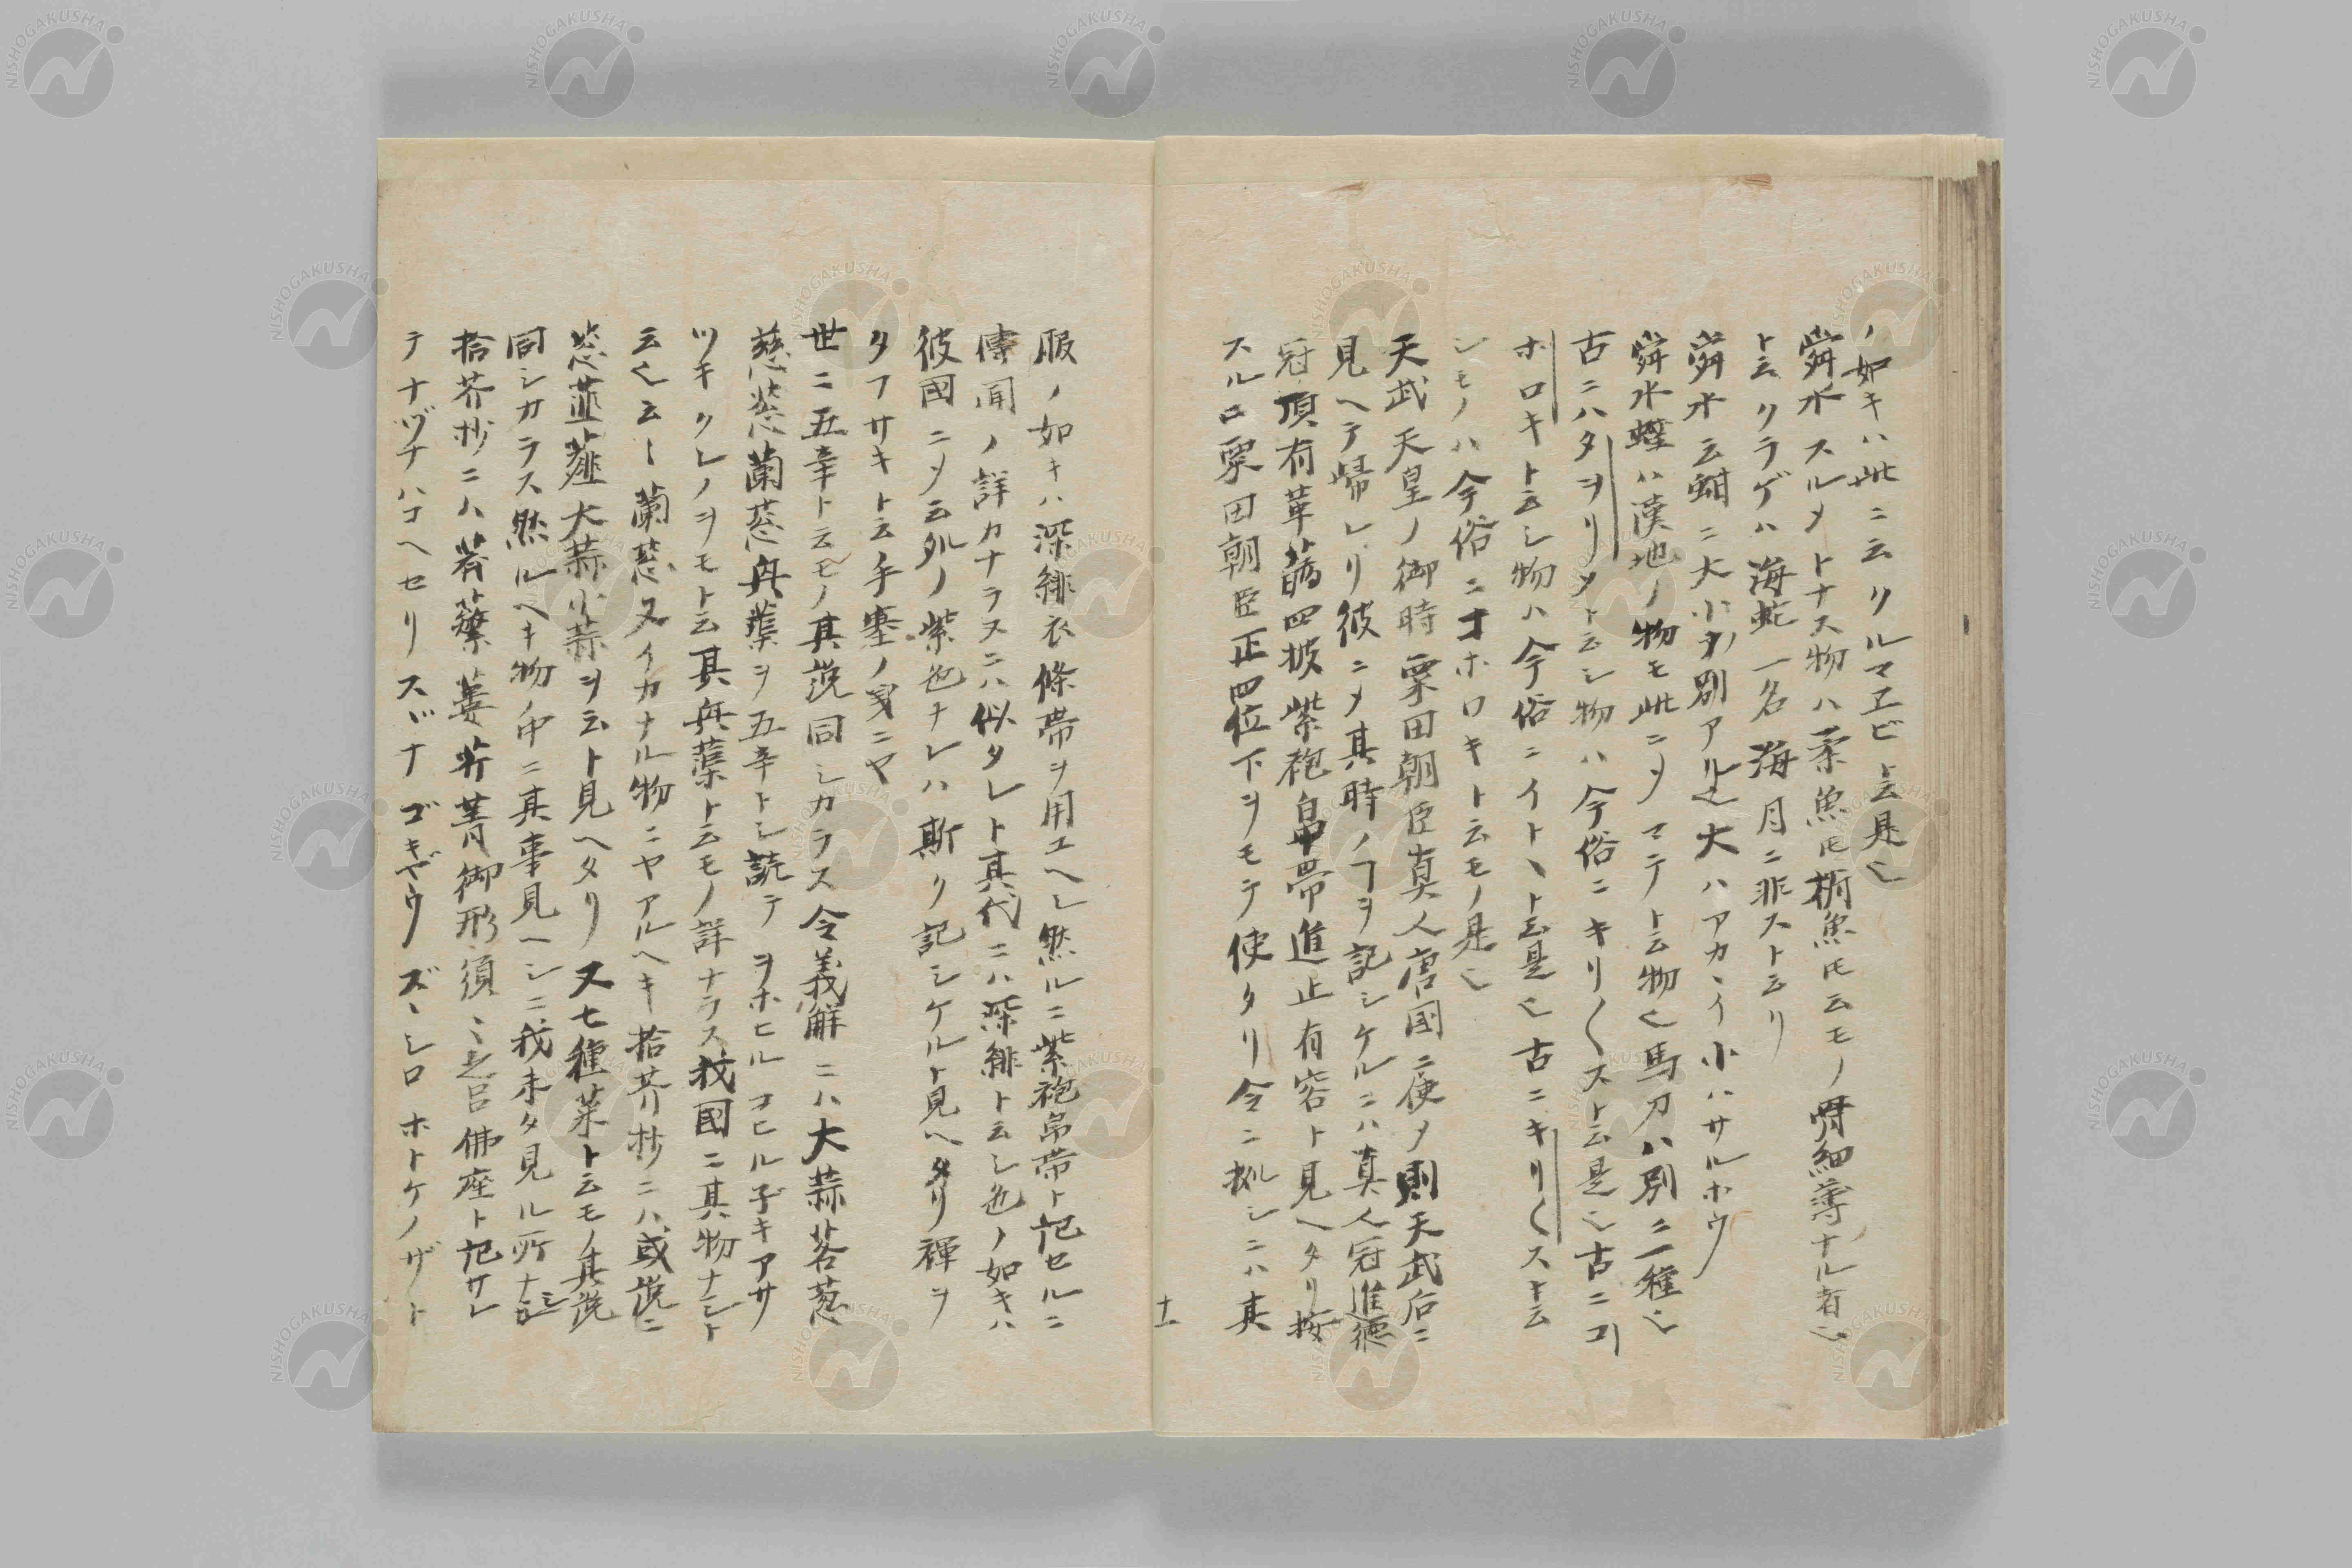 ノ如キハ此ニ云クルマヱビト云是也
舜水スルメトナス物ハ柔魚ト云モノ骨細薄ナル者也
ト云クラゲハ海蛇一名海月ニ非ストニ云リ
舜水云蚶ニ大小ノ別アル也大ハアカヽイ小ハサルホウ
舜水蟶ハ漢地ノ物モ此ニメマテト云物也馬刀ハ別ニ一種也
古ニハタヲリメト云シ物ハ今俗ニキリ〱スト云是也古ニコ
ホロキト云シ物ハ今俗ニイトヽト云是也古ニキリ〱スト云
シモノハ今俗ニコホロキト云モノ是也
天武天皇ノ御時粟田朝臣真人唐國ニ使メ則天武后ニ
見ヘテ帰レリ彼ニメ其時ノヿヲ記シケルニハ真人冠進德
冠頂有華蘤四披紫袍帛帯進止有容ト見ヘタリ按
スルニ粟田朝臣正四位下ヲモテ使タリ令ニ拠シニハ其
十一
服ノ如キハ深緋衣條帯ヲ用ユヘし然ルニ紫袍帛帯ト記セルニ
傳聞ノ詳カナラヌニハ似タレト其代ニハ深緋ト云シ色ノ如キハ
彼國ニメ云処ノ紫色ナレハ斯ク記シケルト見ヘタリ襌ヲ
タフサキト云手塞ノ義ニヤ
世ニ五辛ト云モノ其説同シカラス令義解ニハ大蒜茖葱
慈葱蘭葱興蕖ヲ五辛トシ読テヲホヒルコヒル子キアサ
ツキクレノヲモト云其興蕖ト云モノ詳ナラス我國ニ其物ナシト
云也云〻蘭葱又イカナル物ニヤアルヘキ拾芥抄ニハ或説ニ
葱韮薤大蒜小蒜ヲ云ト見ヘタリ又七種菜ト云モノ其説
同シカラス然ルヘキ物ノ中ニ其事見ヘシニ我未タ見ル所ナシ
拾芥抄ニハ薺蘩蔞芹菁御形須〻之呂佛座ト記サレ
テナヅナハコヘセリスヾナゴギヤウズヽシロホトケノザト